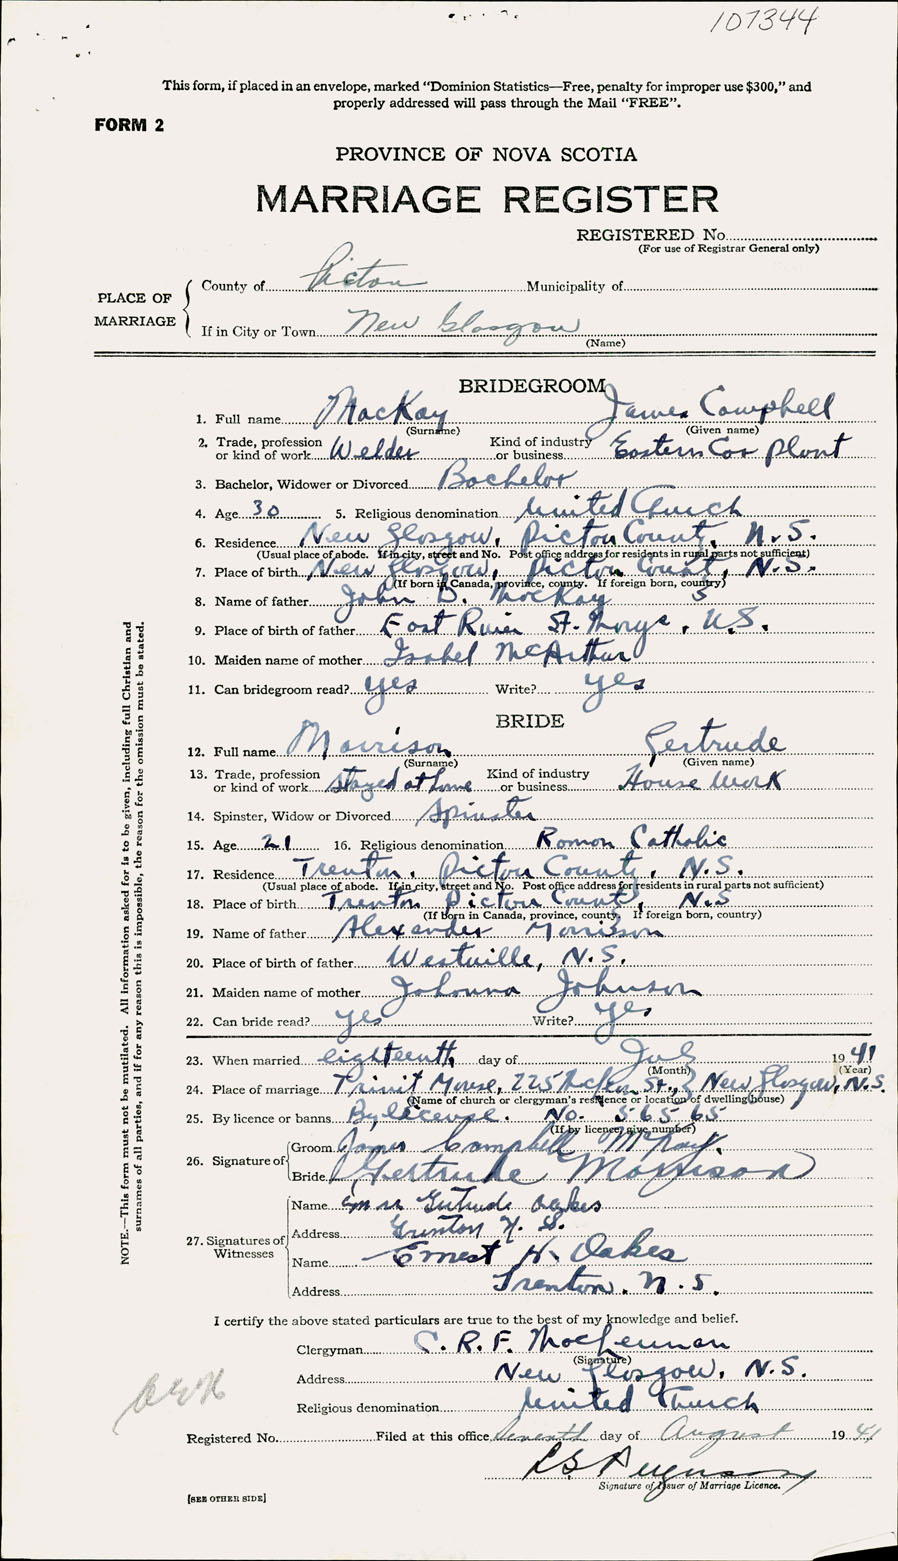 107344
This form, if placed in an envelope, marked "Dominion Statistics—Free, penalty for improper use $300," and
properly addressed will pass through the Mail "FREE".
FORM 2
PROVINCE OF NOVA SCOTIA
MARRIAGE REGISTER
REGISTERED No.
(For use of Registrar General only)
PLACE OF MARRIAGE
County of Pictou Municipality of
If in City or Town New Glasgow
(Name)
BRIDEGROOM
1. Full name MacKay James Campbell
(Surname) (Given name)
2. Trade, profession or kind of work Welder Kind of industry or business Eastern Car Plant
3. Bachelor, Widower or Divorced Bachelor
4. Age 30 5. Religious denomination United Church
6. Residence New Glasgow, Pictou County, N.S.
(Usual place of abode. If in city, street and No. Post office address for residents in rural parts not sufficient)
7. Place of birth New Glasgow, Pictou County, N.S.
(If born in Canada, province, county. If foreign born, country)
8. Name of father John D. MacKay
9. Place of birth of father East River St. Marys, N.S.
10. Maiden name of mother Isabel McArthur
11. Can bridegroom read? yes Write? yes
BRIDE
12. Full name Morrison Gertrude
(Surname) (Given name)
13. Trade, profession or kind of work stayed at home Kind of industry or business House Work
14. Spinster, Widow or Divorced Spinster
15. Age 21 16. Religious denomination Roman Catholic
17. Residence Trenton, Pictou County, N.S.
(Usual place of abode. If in city, street and No. Post office address for residents in rural parts not sufficient)
18. Place of birth Trenton Pictou County, N.S
(If born in Canada, province, county. If foreign born, country)
19. Name of father Alexander Morrison
20. Place of birth of father Westville, N.S.
21. Maiden name of mother Johanna Johnson
22. Can bride read? yes Write? yes
23. When married eighteenth day of July 1941
(Month) (Year)
24. Place of marriage 225 St., New Glasgow, N.S.
(Name of church or clergyman's residence or location of dwelling house)
25. By licence or banns By license. No. 56565
(If by licence, give number)
26. Signature of
Groom James Campbell McKay
Bride Gertrude Morrison
27. Signatures of Witnesses
Name Mrs Gertrude Oakes
Address Trenton N. S.
Name Ernest H. Oakes
Address Trenton, N.S.
I certify the above stated particulars are true to the best of my knowledge and belief.
Clergyman C. R. F. MacLennan
(Signature)
Address New Glasgow, N.S.
Religious denomination United Church
Registered No. Filed at this office seventh day of August 1941
Signature of Issuer of Marriage Licence.
[SEE OTHER SIDE]
NOTE.—This form must not be mutilated. All information asked for is to be given, including full Christian and
surnames of all parties, and if for any reason this is impossible, the reason for the omission must be stated.